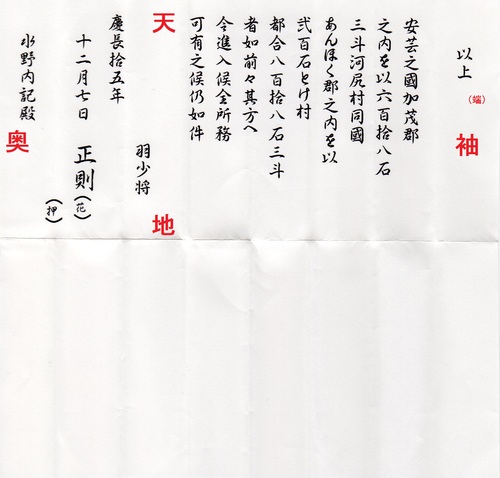 （端）
袖
以上
安芸之國加茂郡
之内を以六百拾八石
三斗河尻村同國
あんほく郡之内を以
弐百石とけ村
都合八百拾八石三斗
者如前々其方へ
令進入候全所務
可有之候仍如件
天
地
羽少将
慶長拾五年
十二月七日　正則（花
（押）
水野内記殿
奥